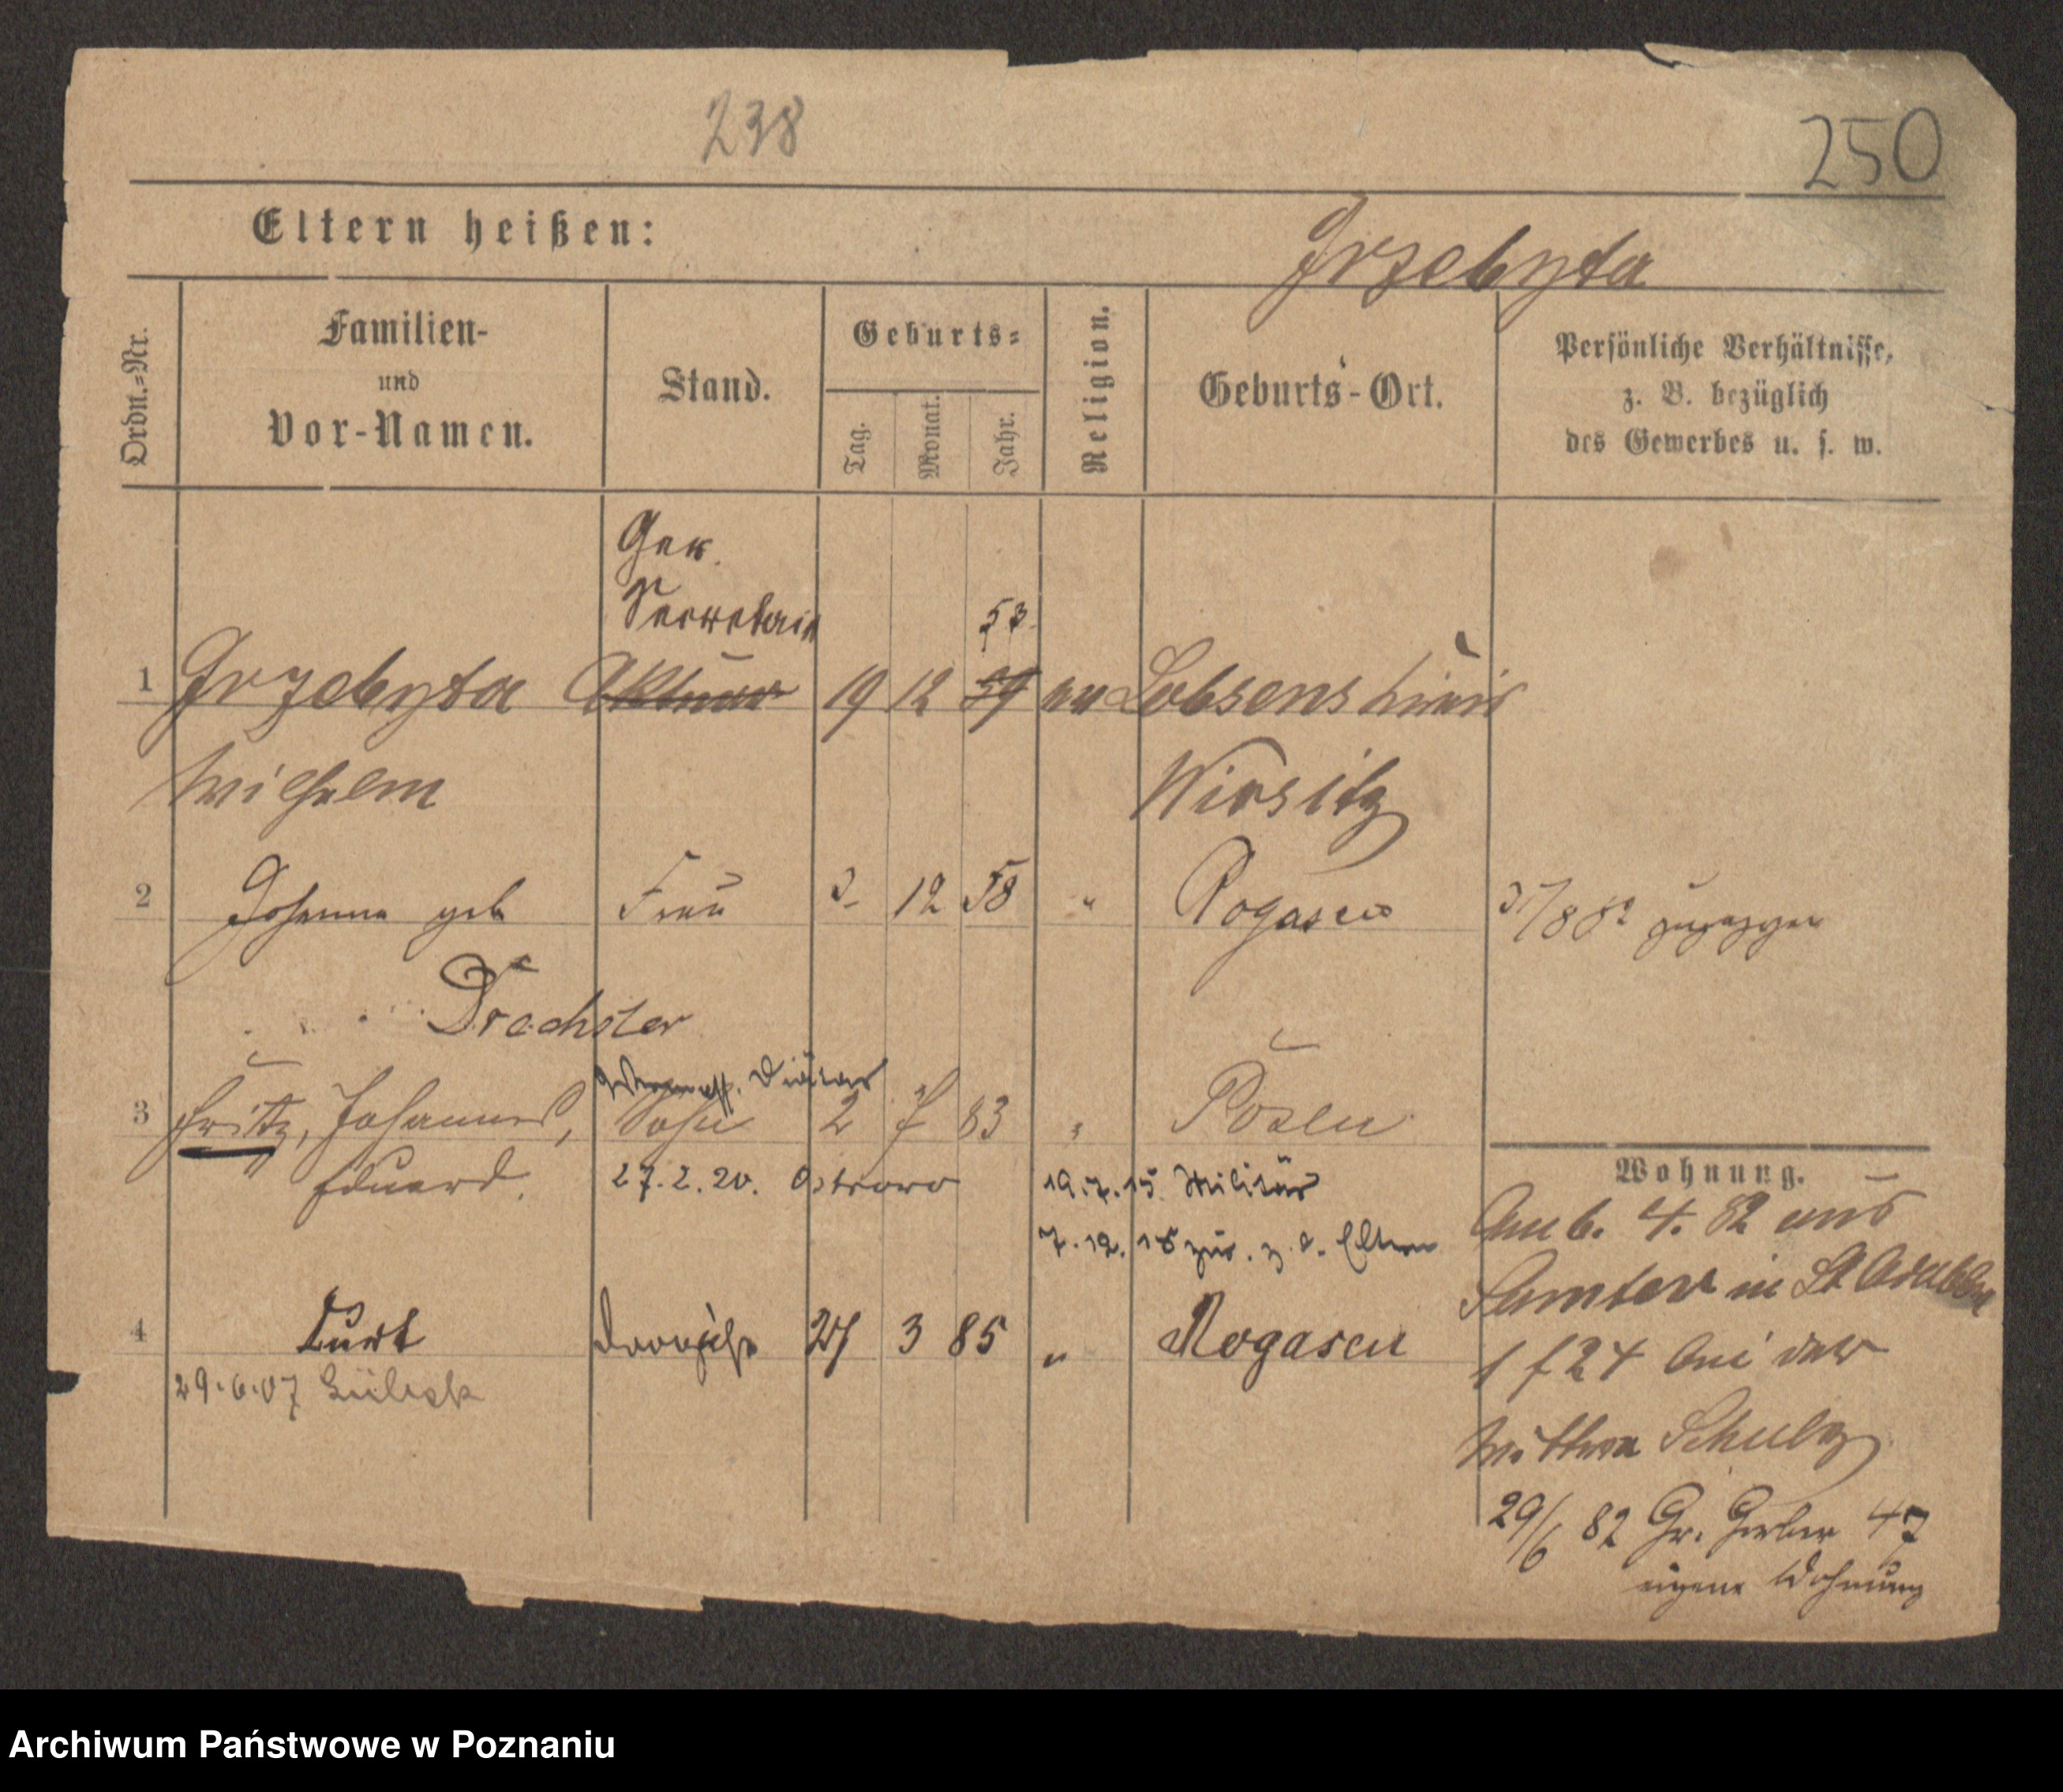 238
250
Eltern heißen:
Grzebyta
Ordn.-Nr.
Familien-
und
Vor-Namen.
Stand.
Geburts-
Tag.
Monat.
Jahr.
Religion.
Geburts-Ort.
Persönliche Verhältnisse,
z. B. bezüglich
des Gewerbes u. s. w.
Ger.
Secretair
53
1 Grzebyta Aktuar 19 12 59 ev Lobsens Kreis
Wilhelm
Wirsitz
2 Johanna geb Frau 2 12 58 " Rogasen 3/88 zugezogen
Drechsler
Diätar
3 Fritz, Johannes, Sohn 2 7 83 " Posen
Eduard.
27.2.20. Ostrowo
19.7.15. Militär
7.12.18 zur. z. d. Eltern
4 Kurt 27 3 85 " Rogasen
29.6.07 Lübeck
Wohnung.
Am 6. 4. 82 aus
Samter in St Adalbert
1 f 24 bei der
Wittwe Schulz
29/6 82 Gr. Gerber 47
eigene Wohnung
Archiwum Państwowe w Poznaniu